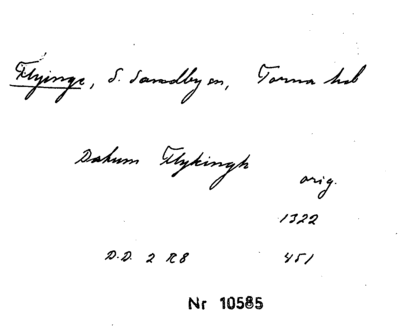 Flyinge, S. Sandby sn, Torna hd
Datum Flykingh
orig.
1322
D.D. 2 R8 451
Nr 10585